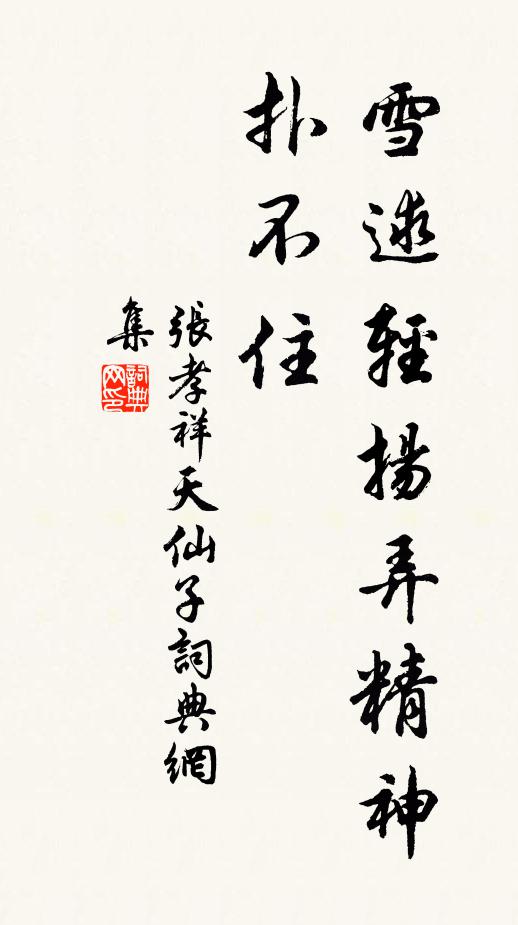 雪毬輕揚弄精神
扑不住
張孝祥天仙子詞典網
集
詞典
网印